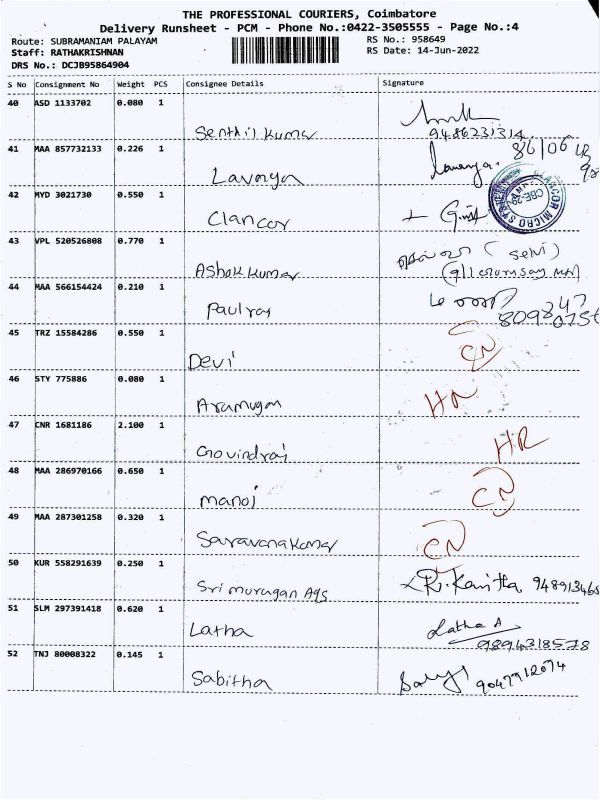 THE PROFESSIONAL COURIERS, Coimbatore
Delivery Runsheet - PCM - Phone No.:0422-3505555 - Page No.:4
Route: SUBRAMANIAM PALAYAM RS No.: 958649
Staff: RATHAKRISHNAN RS Date: 14-Jun-2022
DRS No.: DCJB95864904
S No Consignment No Weight PCS Consignee Details Signature
40 ASD 1133702 0.080 1
Senthil kumar 9486231314
41 MAA 857732133 0.226 1 8/6/06
Lavanya Lavanya.
42 MYD 3021730 0.550 1
Clancor
43 VPL 520526808 0.770 1 (selvi)
Ashok kumar
44 MAA 566154424 0.210 1
Paulraj
45 TRZ 15584286 0.550 1
Devi CN
46 STY 775886 0.080 1
Arumugam HR
47 CNR 1681186 2.100 1
Govindraj HR
48 MAA 286970166 0.650 1
manoj CN
49 MAA 287301258 0.320 1
Saravanakumar CN
50 KUR 558291639 0.250 1
Sri murugan Ags R. Kavitha 948913465
51 SLM 297391418 0.620 1
Latha Latha A
9894318578
52 TNJ 80008322 0.145 1
Sabitha 9047912074